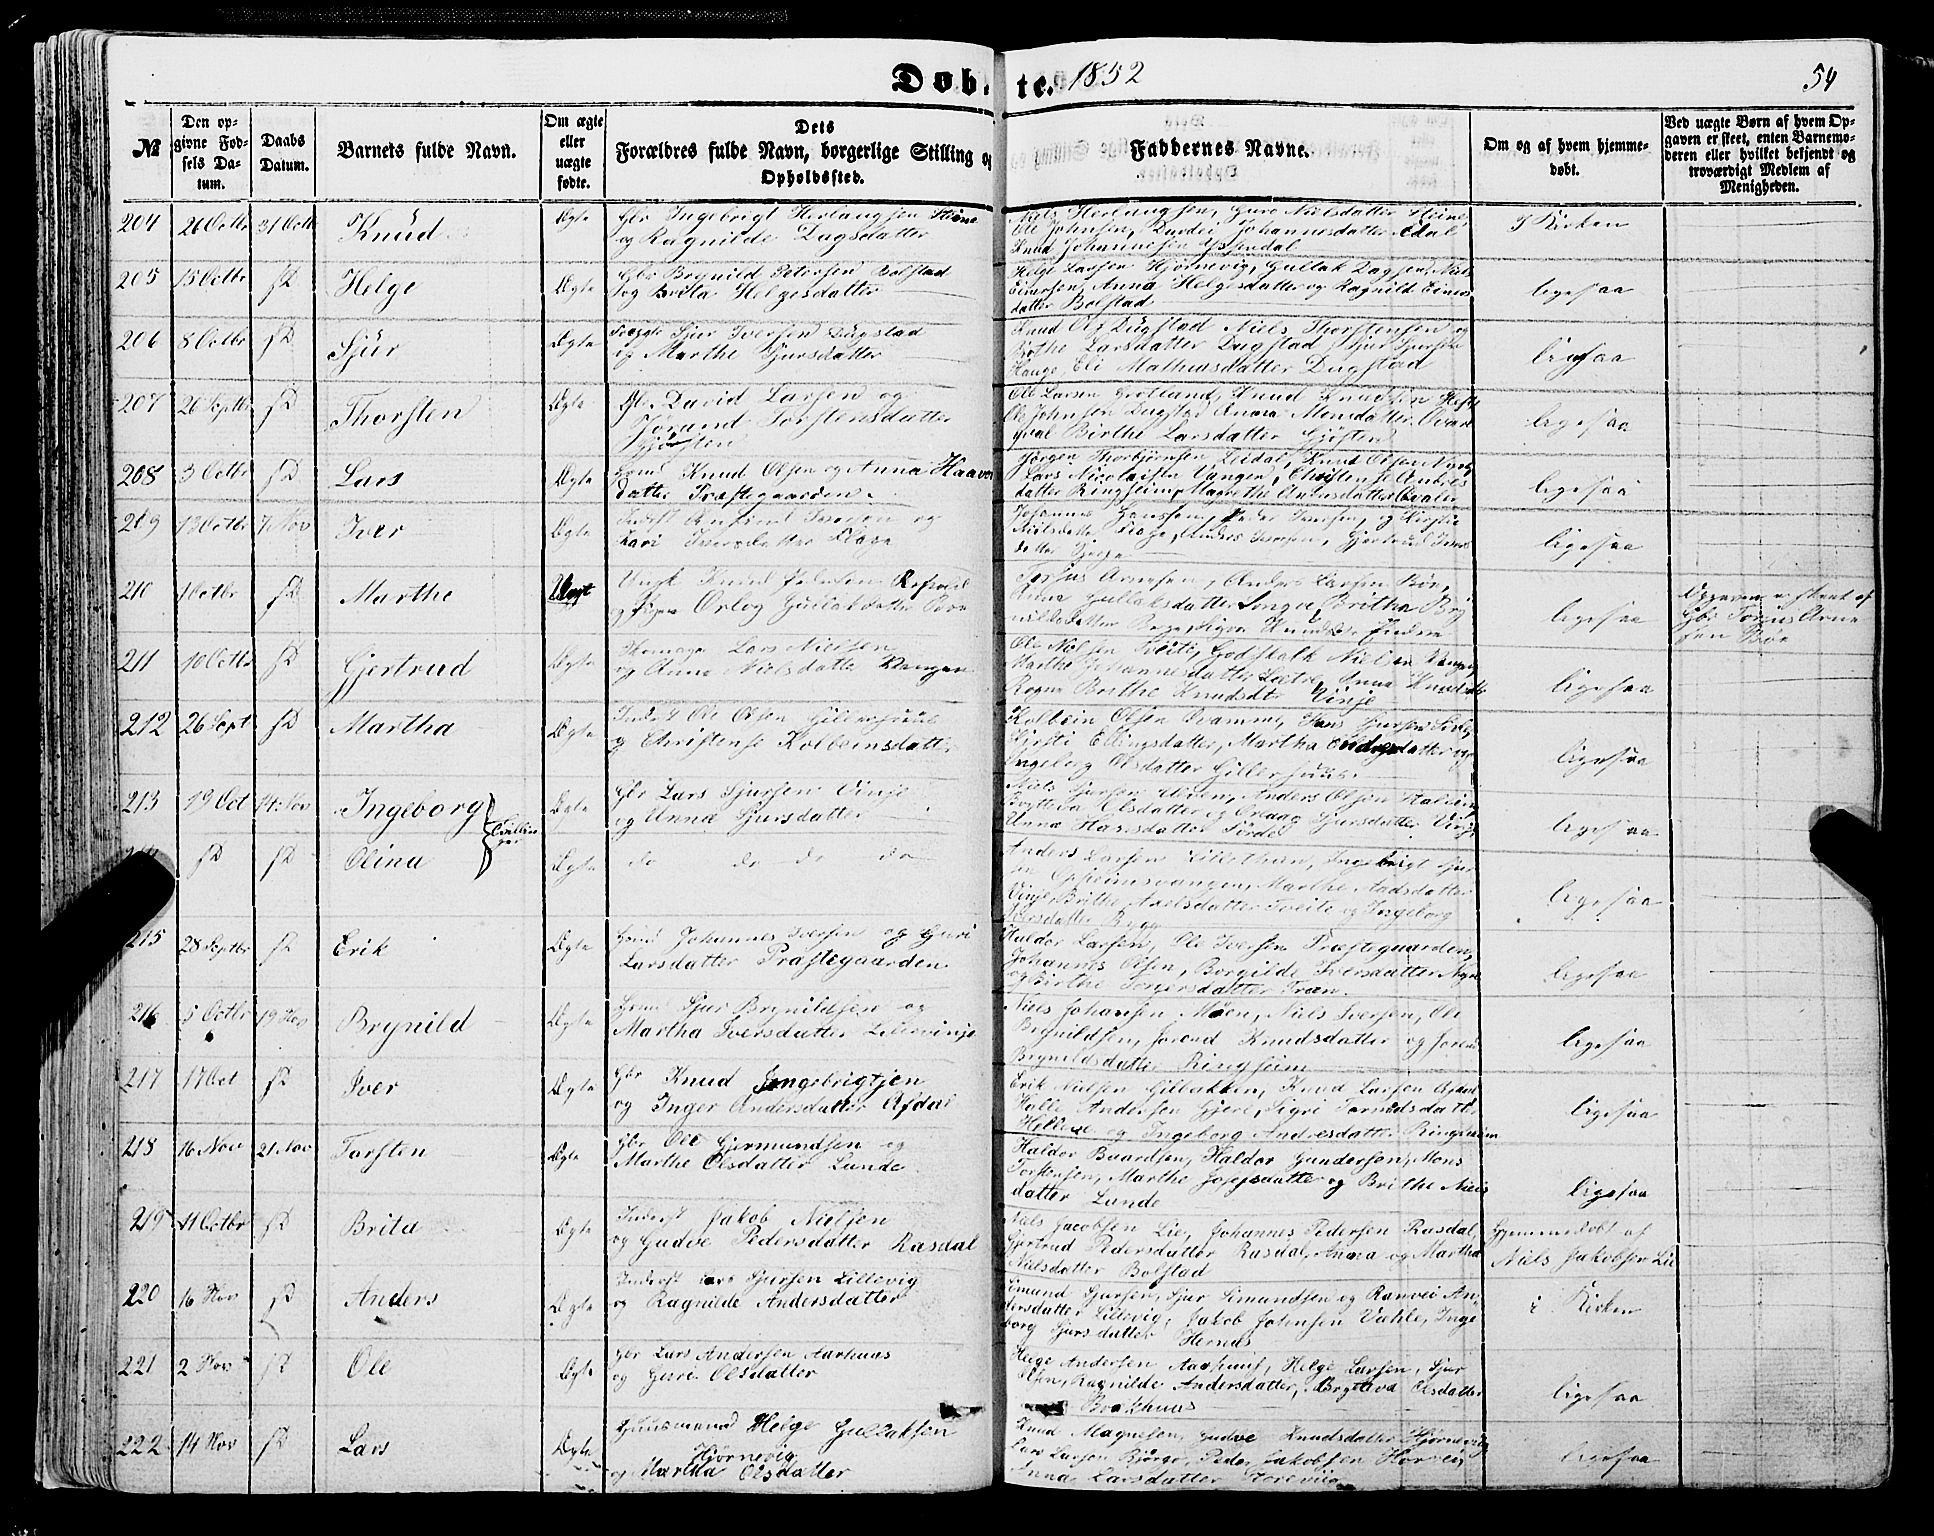 Døbte. 1852
54
№
Den op-
givne Fød-
sels Da-
tum.
Daabs
Datum.
Barnets fulde Navn.
Om ægte
eller
uægte
fødte.
Dets
Forældres fulde Navn, borgerlige Stilling og
Opholdssted.
Faddernes Navne.
Om og af hvem hjemme-
døbt.
Ved uægte Børn af hvem Op-
gaven er skeet, enten Barnemo-
deren eller hvilket bekjendt og
troværdigt Medlem af
Menigheden.
204 26 Octbr 31 Octbr Knud Ægte Gbr Ingebrigt Herlaugsen
og Ragnilde Dagsdatter
Niels Herlaugsen, Guro Nielsdatter
Ole Johnsen, Johannesdatter
Knud Johannesen
I Kirken
205 15 Octbr sD Helge Ægte Gbr Brynild Petersen Bolstad
og Brita Helgesdatter
Helge Larsen Hjørnevig, Gullak Dagsen, Niels
Einersen, Anna Helgesdatter og Ragnild Einers
datter Bolstad
ligesaa
206 8 Octbr sD Sjur Ægte Sjur Iversen Dugstad
og Marthe Sjursdatter
Knud Ols Dugstad Niels Thorstensen og
Birthe Larsdatter Dugstad, Sjur Sjursen
Hauge Eli Mathiasdatter Dugstad
ligesaa
207 26 Septbr sD Thorsten Ægte David Larsen og
Jorand Torstensdatter
Gjøsten
Ole Larsen Grotland, Knud Knudsen
Ole Johnsen Dugstad Anna Monsdatter
Birthe Larsdatter Gjøsten
ligesaa
208 3 Octbr sD Lars Ægte Knud Olsen og Anna Haavers
datter Præstegaarden.
Jørgen Thorbjørnsen Leidal, Knud Olsen
Lars Nicolaisen Vangen, Christense Andres
datter Ringheim, Magrethe
ligesaa
209 13 Octbr 7 Nov Iver Ægte Inderst Iversen og
Kari Iversdatter Flage
Johannes Hanssen, Peder Iversen, og Kirstie
Nielsdatter Flage, Anders Iversen, Gjertrud Ivers
datter
ligesaa
210 1 Octbr sD Marthe Uægt Ungk Knud
og Pigen Orlog Gullaksdatter Bøe
Torjus Arnesen, Anders Larsen Bøe,
Anna Gullaksdatter Britha Bry
nildsdatter
ligesaa
Opgaven er skeet af
Gbr Torjus Arne
sen Bøe
211 10 Octbr sD Gjertrud Ægte Lars Nielsen
og Anna Nielsdatter Vangen
Ole Nielsen Tveite, Godskalk Nielsen Vangen,
Marthe Johannesdatter Sætre, Anna Knudsdtr
Rogne Birthe Knudsdtr Vinje
ligesaa
212 26 Sept sD Martha Ægte Inderst Ole Olsen Gillerhuus
og Christense Kolbeinsdatter
Kolbein Olsen
Kirsti Ellingsdatter, Martha Endresdatter og
Ingeborg Olsdatter Gillerhuus.
ligesaa
213 19 Oct 14 Nov Ingeborg Tvillin
ger Ægte Gbr Lars Sjursen Vinje
og Anna Sjursdatter
Niels Sjursen Anders Olsen
Brytteva Olsdatter og Orlaug Sjursdatter Vinje
Anna Hansdatter
ligesaa
sD sD Olina Ægte do do do do
Anders Larsen Ingebrigt Sjur
sen Opheimsvangen, Marthe
Vinje, Brithe Axelsdatter Tveite og Ingeborg
Iversdatter Bryn
ligesaa
215 28 Septbr sD Erik Ægte Johannes Iversen og Guri
Larsdatter Præstegaarden
Haldor Larsen, Ole Iversen Præstegaarden,
Johannes Olsen, Borgilde Iversdatter
og Birthe
ligesaa
216 5 Octbr 19 Nov Brynild Ægte Sjur Brynildsen og
Martha Iversdatter Lillevinje
Niels Johansen Møen, Niels Iversen, Ole
Brynildsen, Jorand Knudsdatter og Jorand
Brynildsdatter Ringheim
ligesaa
217 17 Oct sD Iver Ægte Gbr Knud Ingebrigtsen
og Inger Andersdatter Afdal
Erik Nielsen Gilbakken, Knud Larsen
Halle Andersen Gjere, Sigri
Hellene og Ingeborg Andresdatter Ringheim
ligesaa
218 16 Nov 21 Nov Torsten Ægte Gbr Ole Gjermundsen og
Marthe Olsdatter Lunde
Haldor Baardsen, Haldor Gundersen, Mons
Torkensen, Marthe Josepsdatter og Brithe Niels
datter Lunde
ligesaa
219 11 Octbr sD Brita Ægte Inderst Jakob Nielsen
og Gudve Pedersdatter Rasdal
Niels Jacobsen Lie, Johannes Pedersen Rasdal,
Gjertrud Pedersdatter Rasdal, Anna og Martha
Nielsdatter Bolstad
Hjemmedøbt af
Niels Jakobsen Lie
220 16 Nov sD Anders Ægte Inderst Lars Sjursen Lillevig
og Ragnilde Andersdatter
Simund Sjursen, Sjur Simundsen og Ranvei An-
dersdatter Lillevig, Jakob Johnsen Væhle, Inge
borg Sjursdatter Hernæs
i Kirken
221 2 Nov sD Ole Ægte Gbr Lars Andersen Aarhuus
og Guri Olsdatter
Helge Andersen Aarhuus, Helge Larsen, Sjur
Olsen, Ragnilde Andersdatter, Brytteva Olsdatter
Brækhuus
ligesaa
222 14 Nov sD Lars Ægte Huusmand Helge Gullaksen
Hjørnevig
og Martha Olsdatter
Knud Magnesen, Gudve Knudsdatter Hjørnevig
Lars Larsen Bjørge, Peder Jakobsen Horvei,
Anna Larsdatter
ligesaa